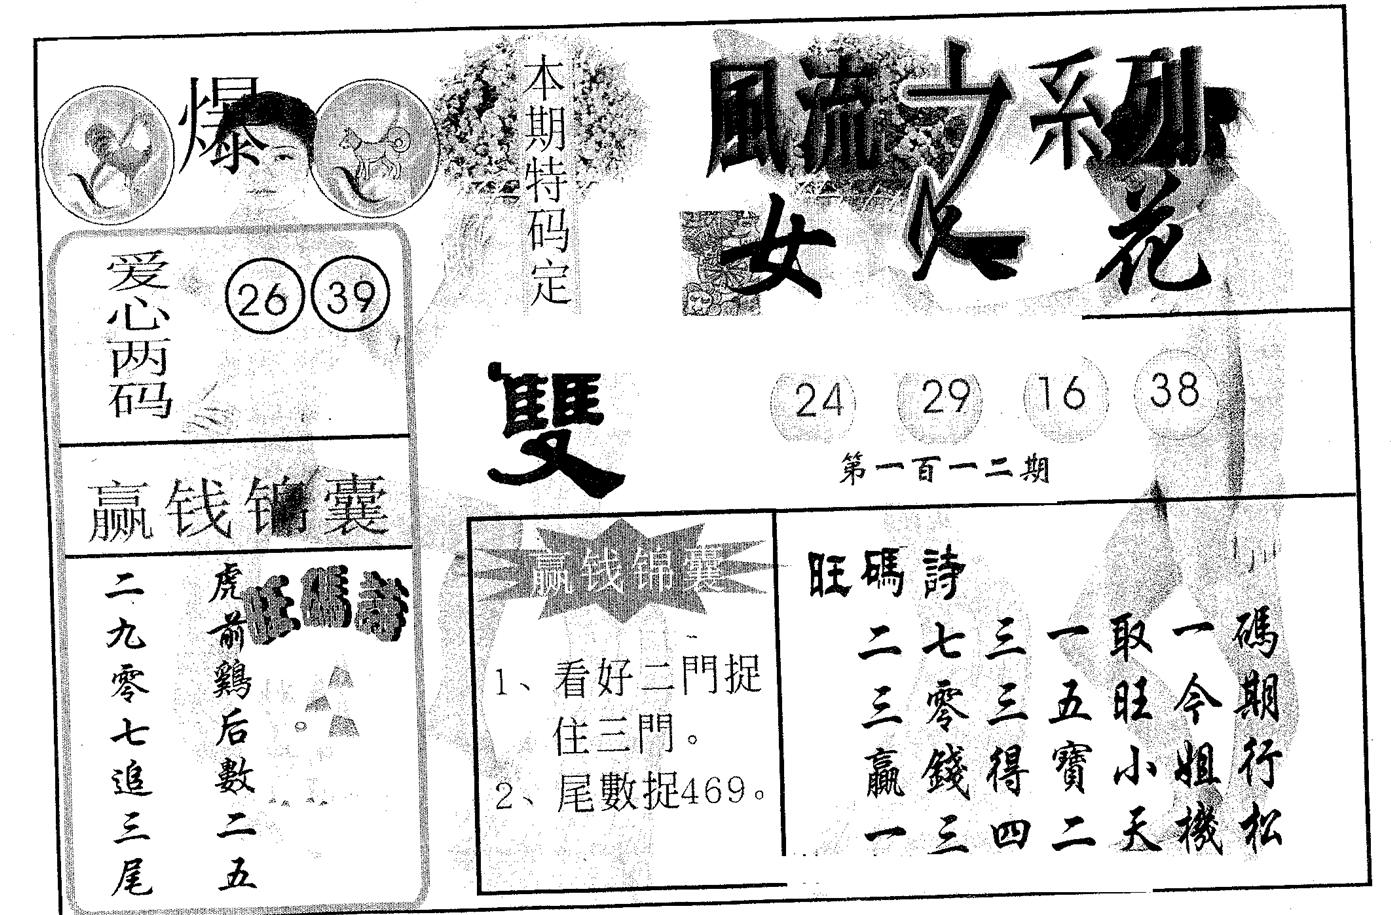 爆
本期特码定
雙
風流女系列
女人花
爱心两码
26 39
24 29 16 38
第一百一二期
赢钱锦囊
旺碼詩
虎前鷄后數二五
二九零七追三尾
赢钱锦囊
1、看好二門捉
住三門。
2、尾數捉469。
旺碼詩
二七三一取一碼
三零三五旺今期
贏錢得寶小姐行
一三四二天機松